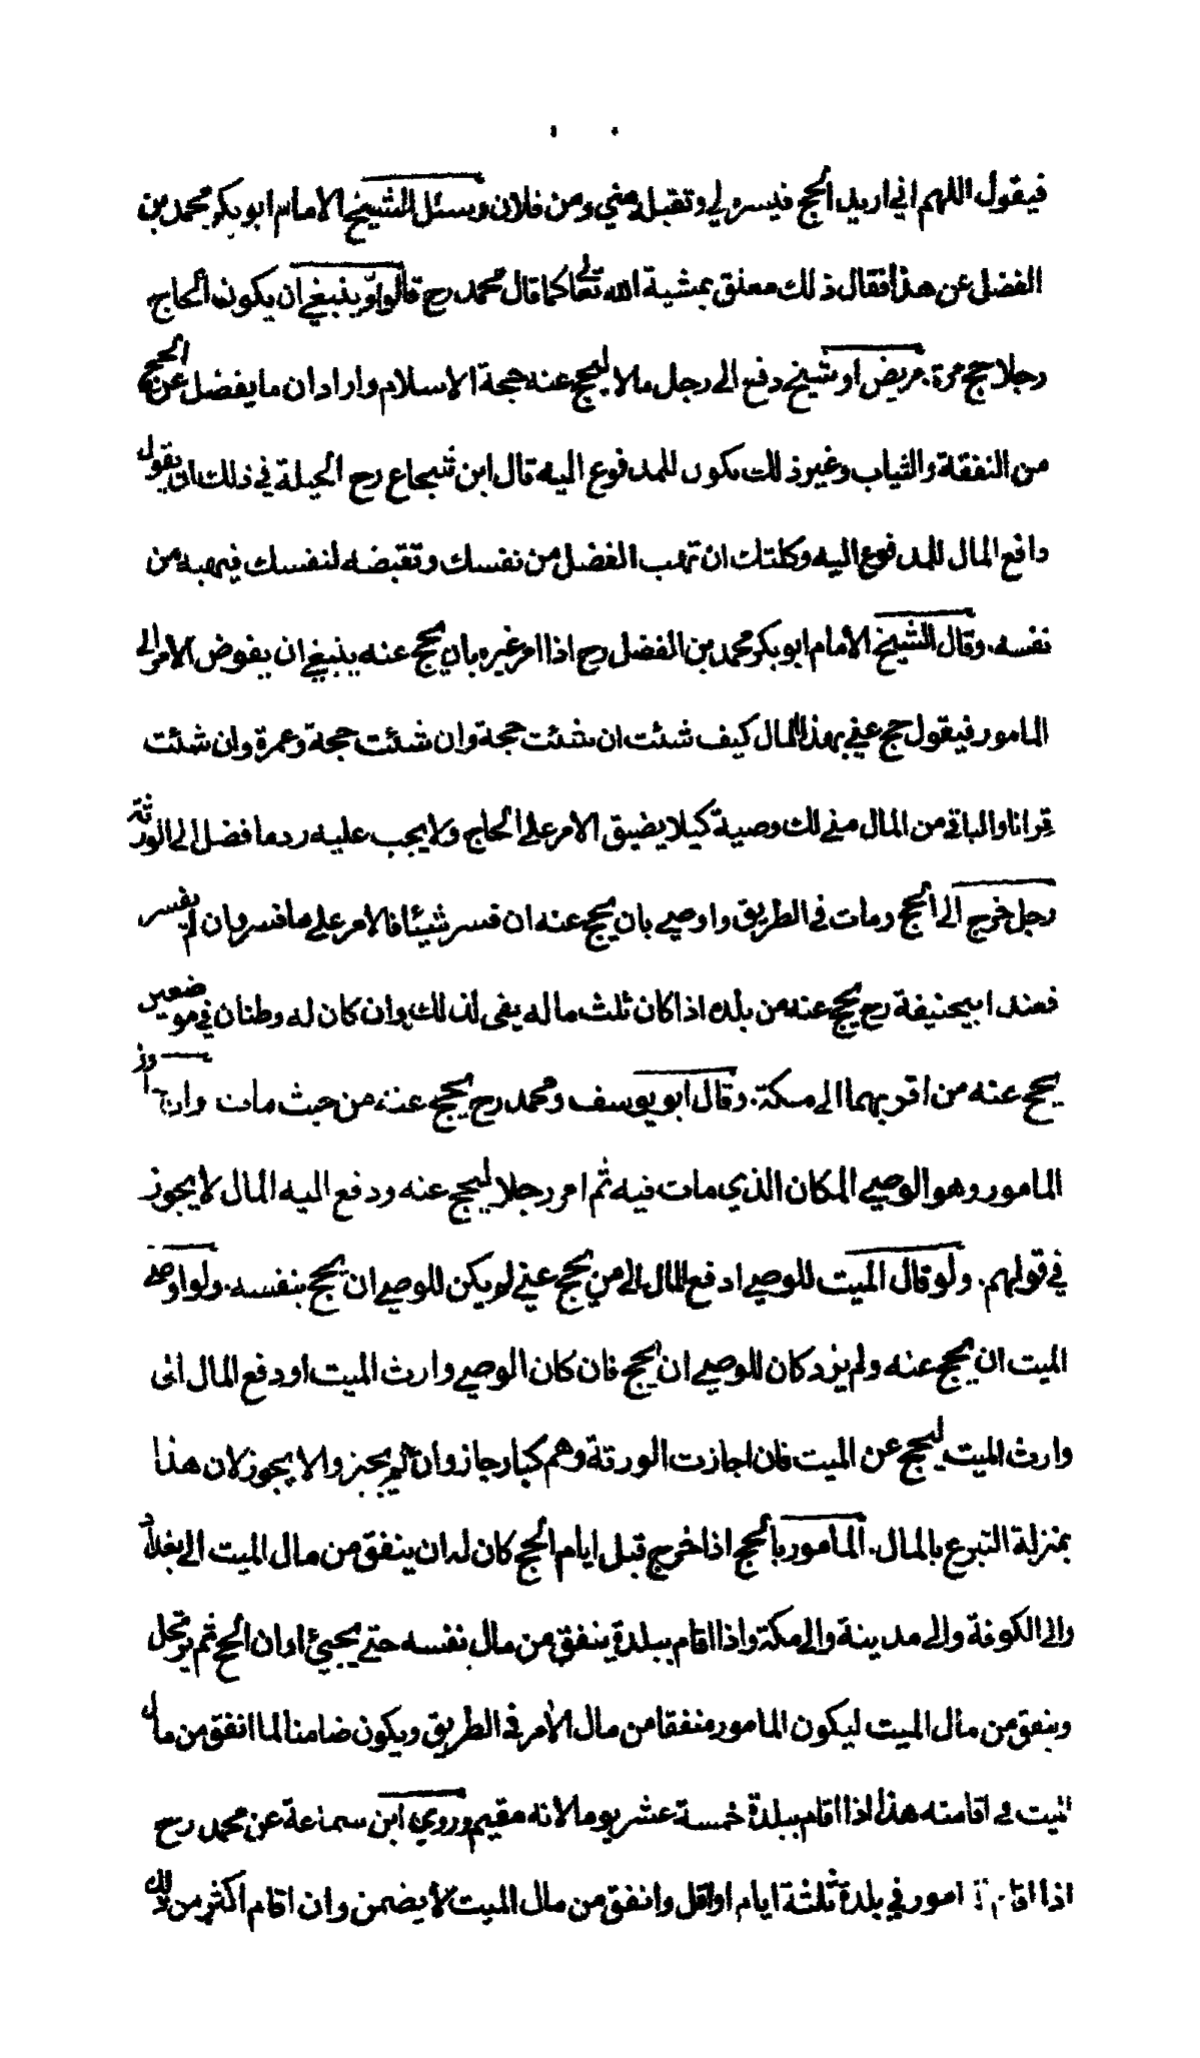 فيقول اللهم اني اريد الحج فيسره لي وتقبله مني ومن فلان وسئل الشيخ الامام ابو بكر محمد بن
الفضل عن هذا فقال ذلك معلق بمشية الله تعالى كما قال محمد رح قالوا وينبغي ان يكون الحاج
رجلا حج مرة. مريض او شيخ دفع الى رجل مالا ليحج عنه حجة الاسلام واراد ان ما يفضل عن الحج
من النفقة والثياب وغير ذلك يكون للمدفوع اليه قال ابن شجاع رح الحيلة في ذلك ان يقول
دافع المال للمدفوع اليه وكلتك ان تهب الفضل من نفسك وتقبضه لنفسك فيهبه من
نفسه. وقال الشيخ الأمام ابو بكر محمد بن الفضل رح اذا امر غيره بان يحج عنه ينبغي ان يفوض الامر الى
المامور فيقول حج عني بهذا المال كيف شئت ان شئت حجة وان شئت حجة وعمرة وان شئت
قرانا والباقي من المال مني لك وصية كيلا يضيق الامر على الحاج ولا يجب عليه رد ما فضل الى الورثة
رجل خرج الى الحج ومات في الطريق واوصى بان يحج عنه ان فسر شيئا فالامر على ما فسر وان لم يفسر
فعند ابيحنيفة رح يحج عنه من بلده اذا كان ثلث ماله يفى لذلك وان كان له وطنان في موضعين
يحج عنه من اقربهما الى مكة. وقال ابو يوسف ومحمد رح يحج عنه من حيث مات وان جاوز
المامور وهو الوصي المكان الذي مات فيه ثم امر رجلا ليحج عنه ودفع اليه المال لا يجوز
في قولهم. ولو قال الميت للوصي ادفع المال الى من يحج عني لم يكن للوصي ان يحج بنفسه. ولو اوصى
الميت ان يحج عنه ولم يزد كان للوصي ان يحج فان كان الوصي وارث الميت او دفع المال الى
وارث الميت ليحج عن الميت فان اجازت الورثة وهم كبار جاز وان لم يجيزوا لا يجوز لان هذا
بمنزلة التبرع بالمال. المامور بالحج اذا خرج قبل ايام الحج كان له ان ينفق من مال الميت الى بغداد
والى الكوفة والى مدينة والى مكة واذا اقام ببلدة ينفق من مال نفسه حتى يجيئ اوان الحج ثم يرتحل
وينفق من مال الميت ليكون المامور منفقا من مال الأمر في الطريق ويكون ضامنا لما انفق من مال
الميت في اقامته هذا اذا اقام ببلدة خمسة عشر يوما لانه مقيم وروى ابن سماعة عن محمد رح
اذا اقام المامور في بلدة ثلثة ايام او اقل وانفق من مال الميت لا يضمن وان اقام اكثر من ذلك